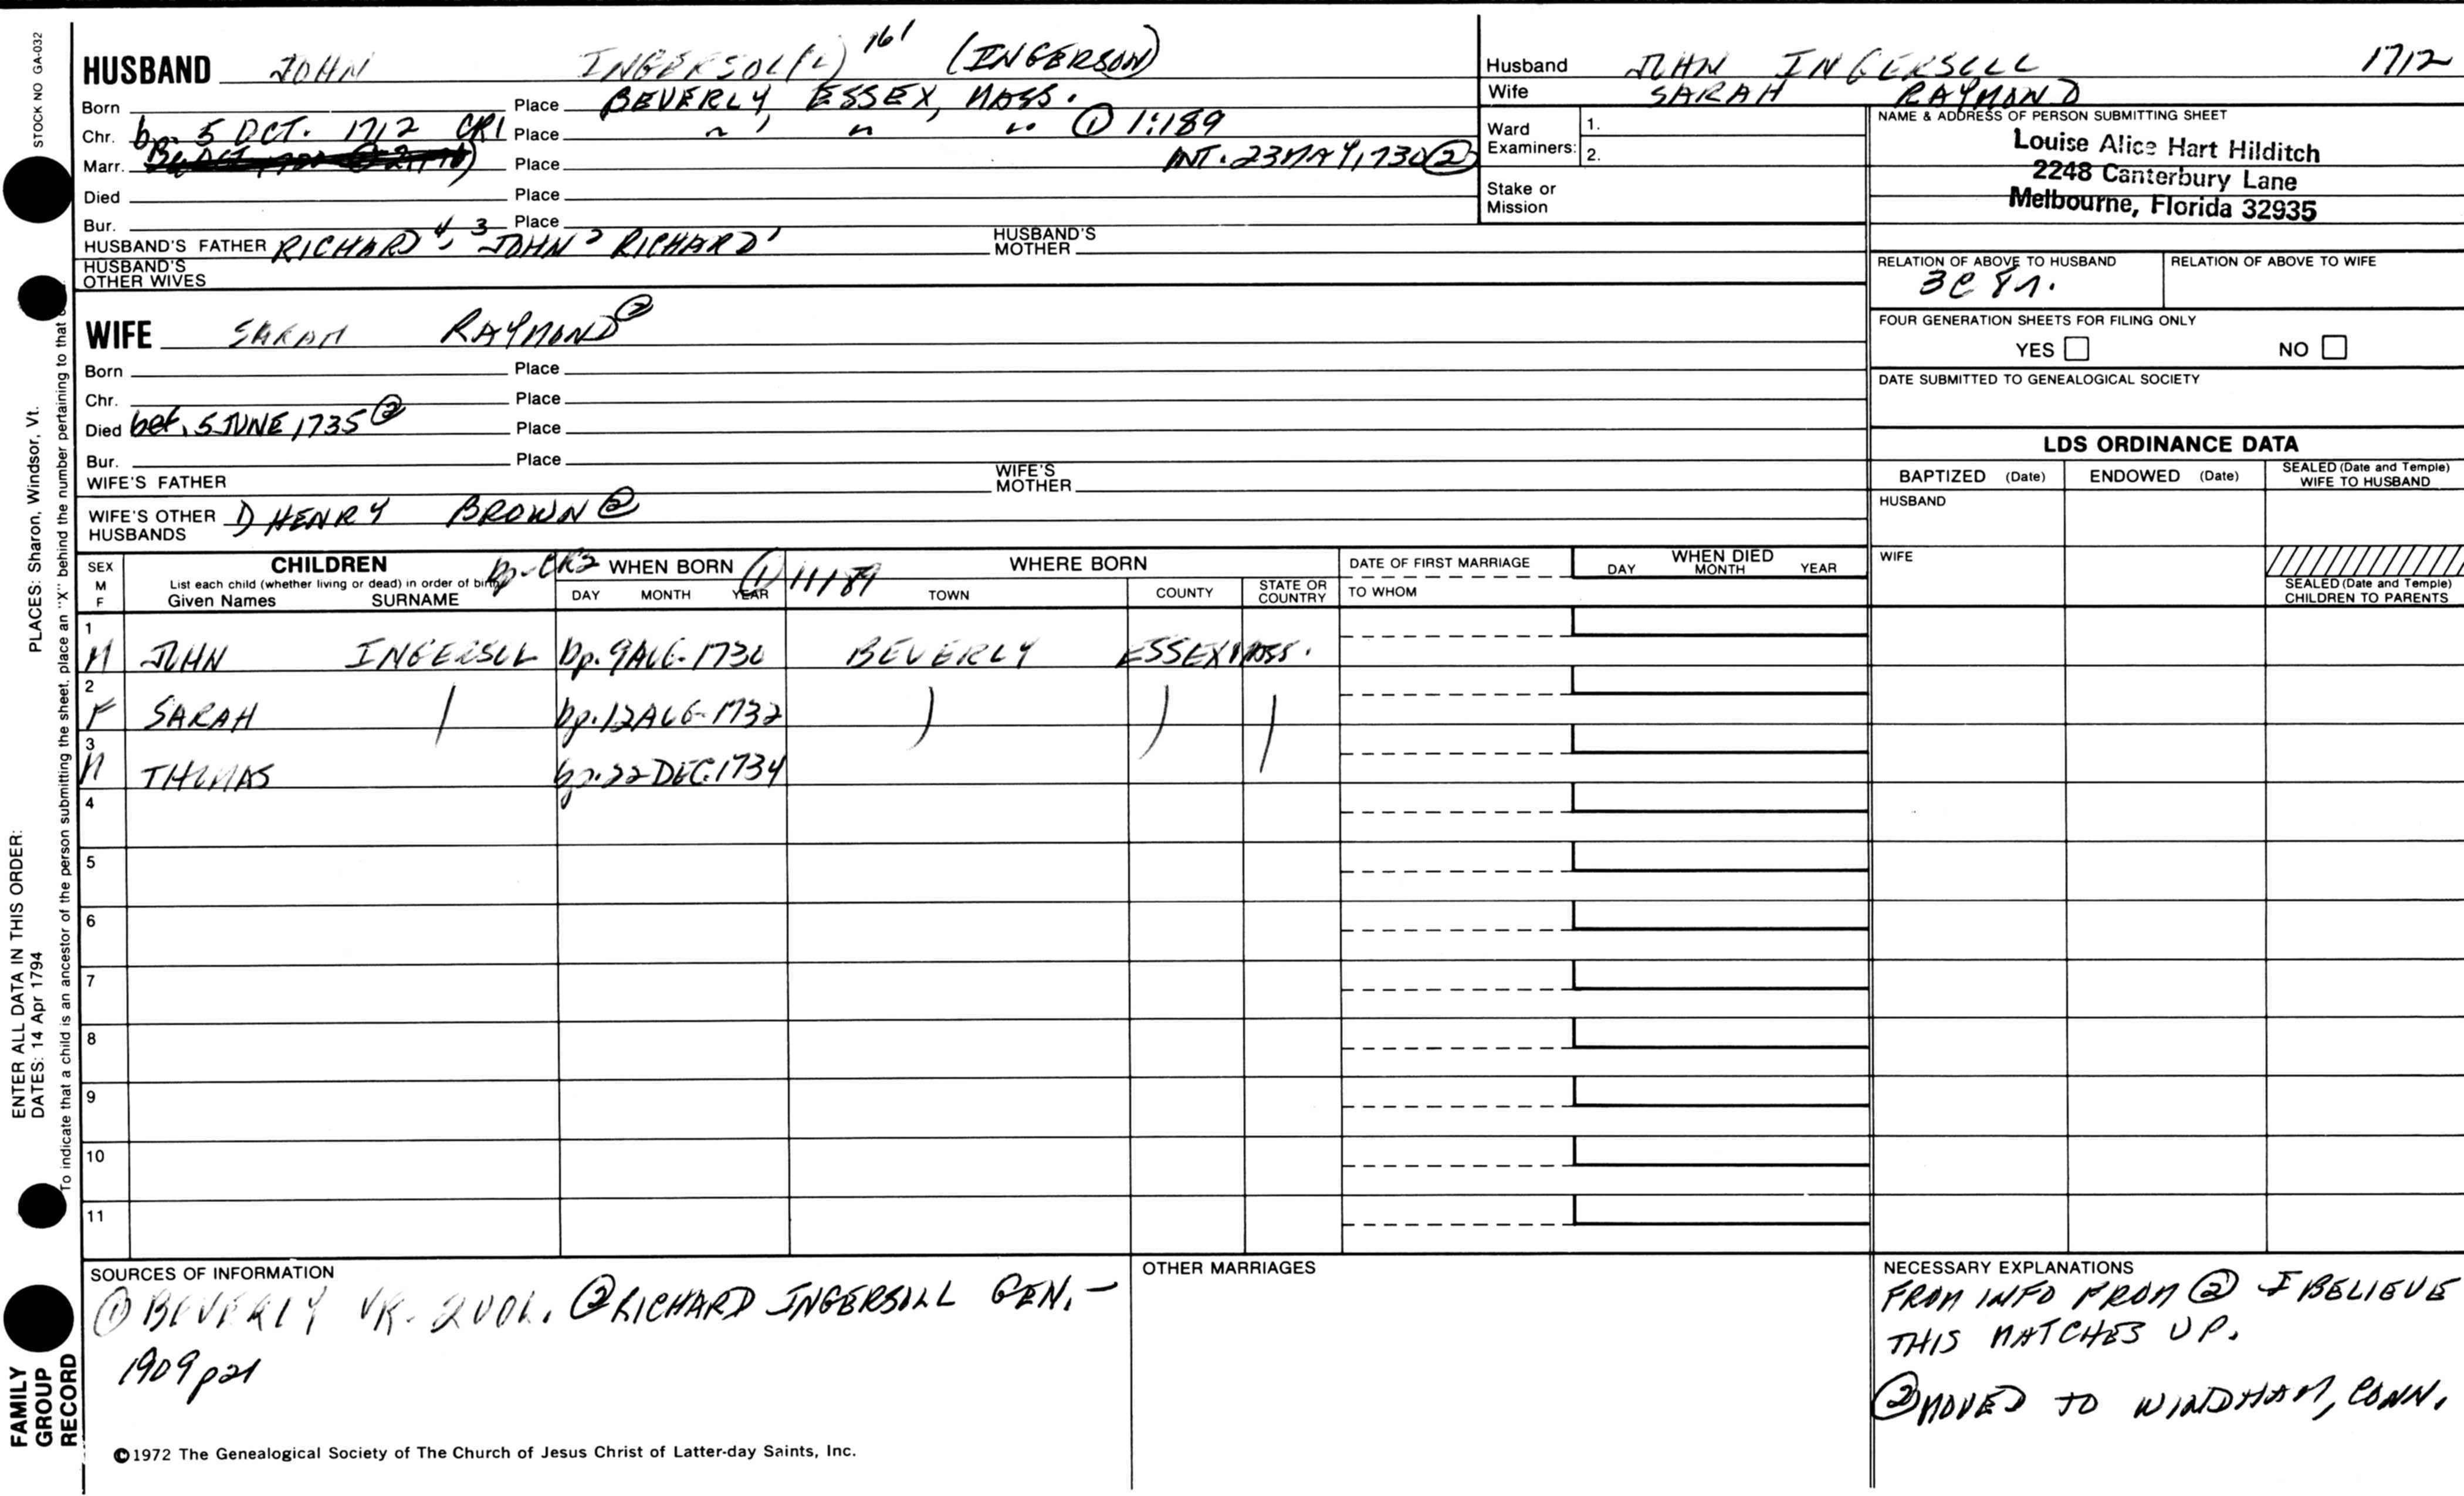 STOCK NO GA-032
HUSBAND JOHN INGERSOL(L) 161 (INGERSON)
Born Place BEVERLY, ESSEX, MASS.
Chr. bp. 5 OCT. 1712 CR1 Place " " " ① 1:189
Marr. Place INT. 23 MAY, 1730 ②
Died Place
Bur. Place
HUSBAND'S FATHER RICHARD 4, JOHN 3 RICHARD 1
HUSBAND'S MOTHER
HUSBAND'S OTHER WIVES
WIFE SARAH RAYMOND ②
Born Place
Chr. Place
Died bef. 5 JUNE 1735 ② Place
Bur. Place
WIFE'S FATHER
WIFE'S MOTHER
WIFE'S OTHER HUSBANDS HENRY BROWN ②
Husband JOHN INGERSOLL 1712
Wife SARAH RAYMOND
Ward Examiners: 1.
2.
Stake or Mission
NAME & ADDRESS OF PERSON SUBMITTING SHEET
Louise Alice Hart Hilditch
2248 Canterbury Lane
Melbourne, Florida 32935
RELATION OF ABOVE TO HUSBAND RELATION OF ABOVE TO WIFE
3C 8r.
FOUR GENERATION SHEETS FOR FILING ONLY
YES NO
DATE SUBMITTED TO GENEALOGICAL SOCIETY
LDS ORDINANCE DATA
BAPTIZED (Date) ENDOWED (Date) SEALED (Date and Temple) WIFE TO HUSBAND
HUSBAND
WIFE
SEALED (Date and Temple) CHILDREN TO PARENTS
SEX M F
CHILDREN
List each child (whether living or dead) in order of birth
Given Names SURNAME
bp-CR2 WHEN BORN ① 1:189
DAY MONTH YEAR
WHERE BORN
TOWN COUNTY STATE OR COUNTRY
DATE OF FIRST MARRIAGE
TO WHOM
WHEN DIED
DAY MONTH YEAR
1 M JOHN INGERSOL bp. 9 AUG. 1730 BEVERLY ESSEX MASS.
2 F SARAH bp. 12 AUG. 1732
3 M THOMAS bp. 22 DEC. 1734
4
5
6
7
8
9
10
11
SOURCES OF INFORMATION
① BEVERLY VR. 2 VOL. ② RICHARD INGERSOLL GEN. -
1909 p21
OTHER MARRIAGES
NECESSARY EXPLANATIONS
FROM INFO FROM ② I BELIEVE
THIS MATCHES UP.
② MOVED TO WINDHAM, CONN.
©1972 The Genealogical Society of The Church of Jesus Christ of Latter-day Saints, Inc.
FAMILY GROUP RECORD
ENTER ALL DATA IN THIS ORDER:
DATES: 14 Apr 1794
PLACES: Sharon, Windsor, Vt.
To indicate that a child is an ancestor of the person submitting the sheet, place an "X" behind the number pertaining to that